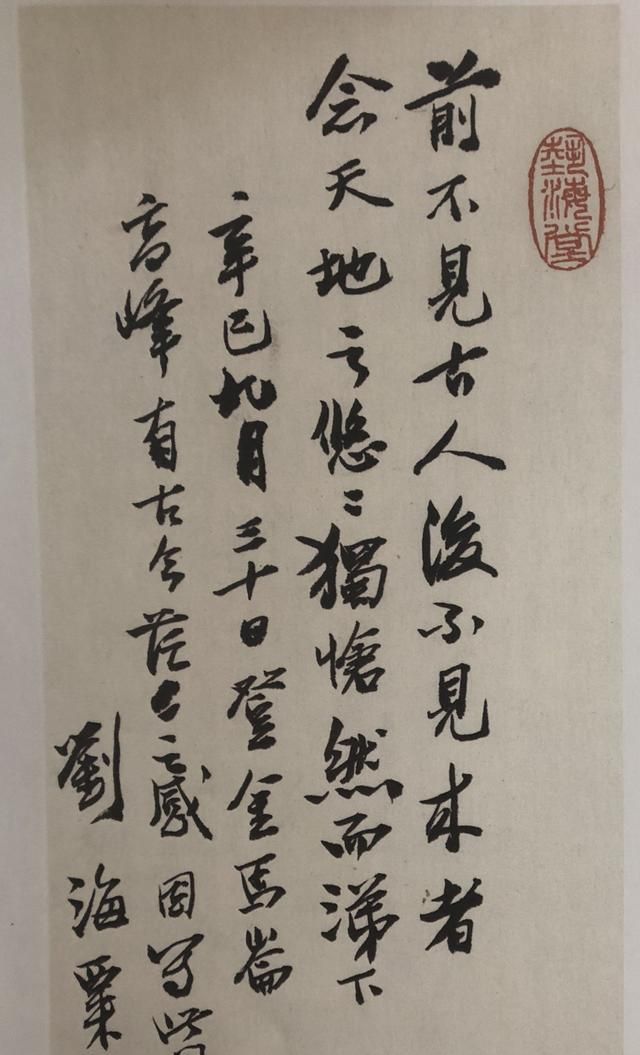 前不見古人後不見来者
念天地之悠〻獨愴然而涕下
辛巳九月三十日登金馬崙
高峰有古今茫〻之感因写此
劉海粟
藝海堂